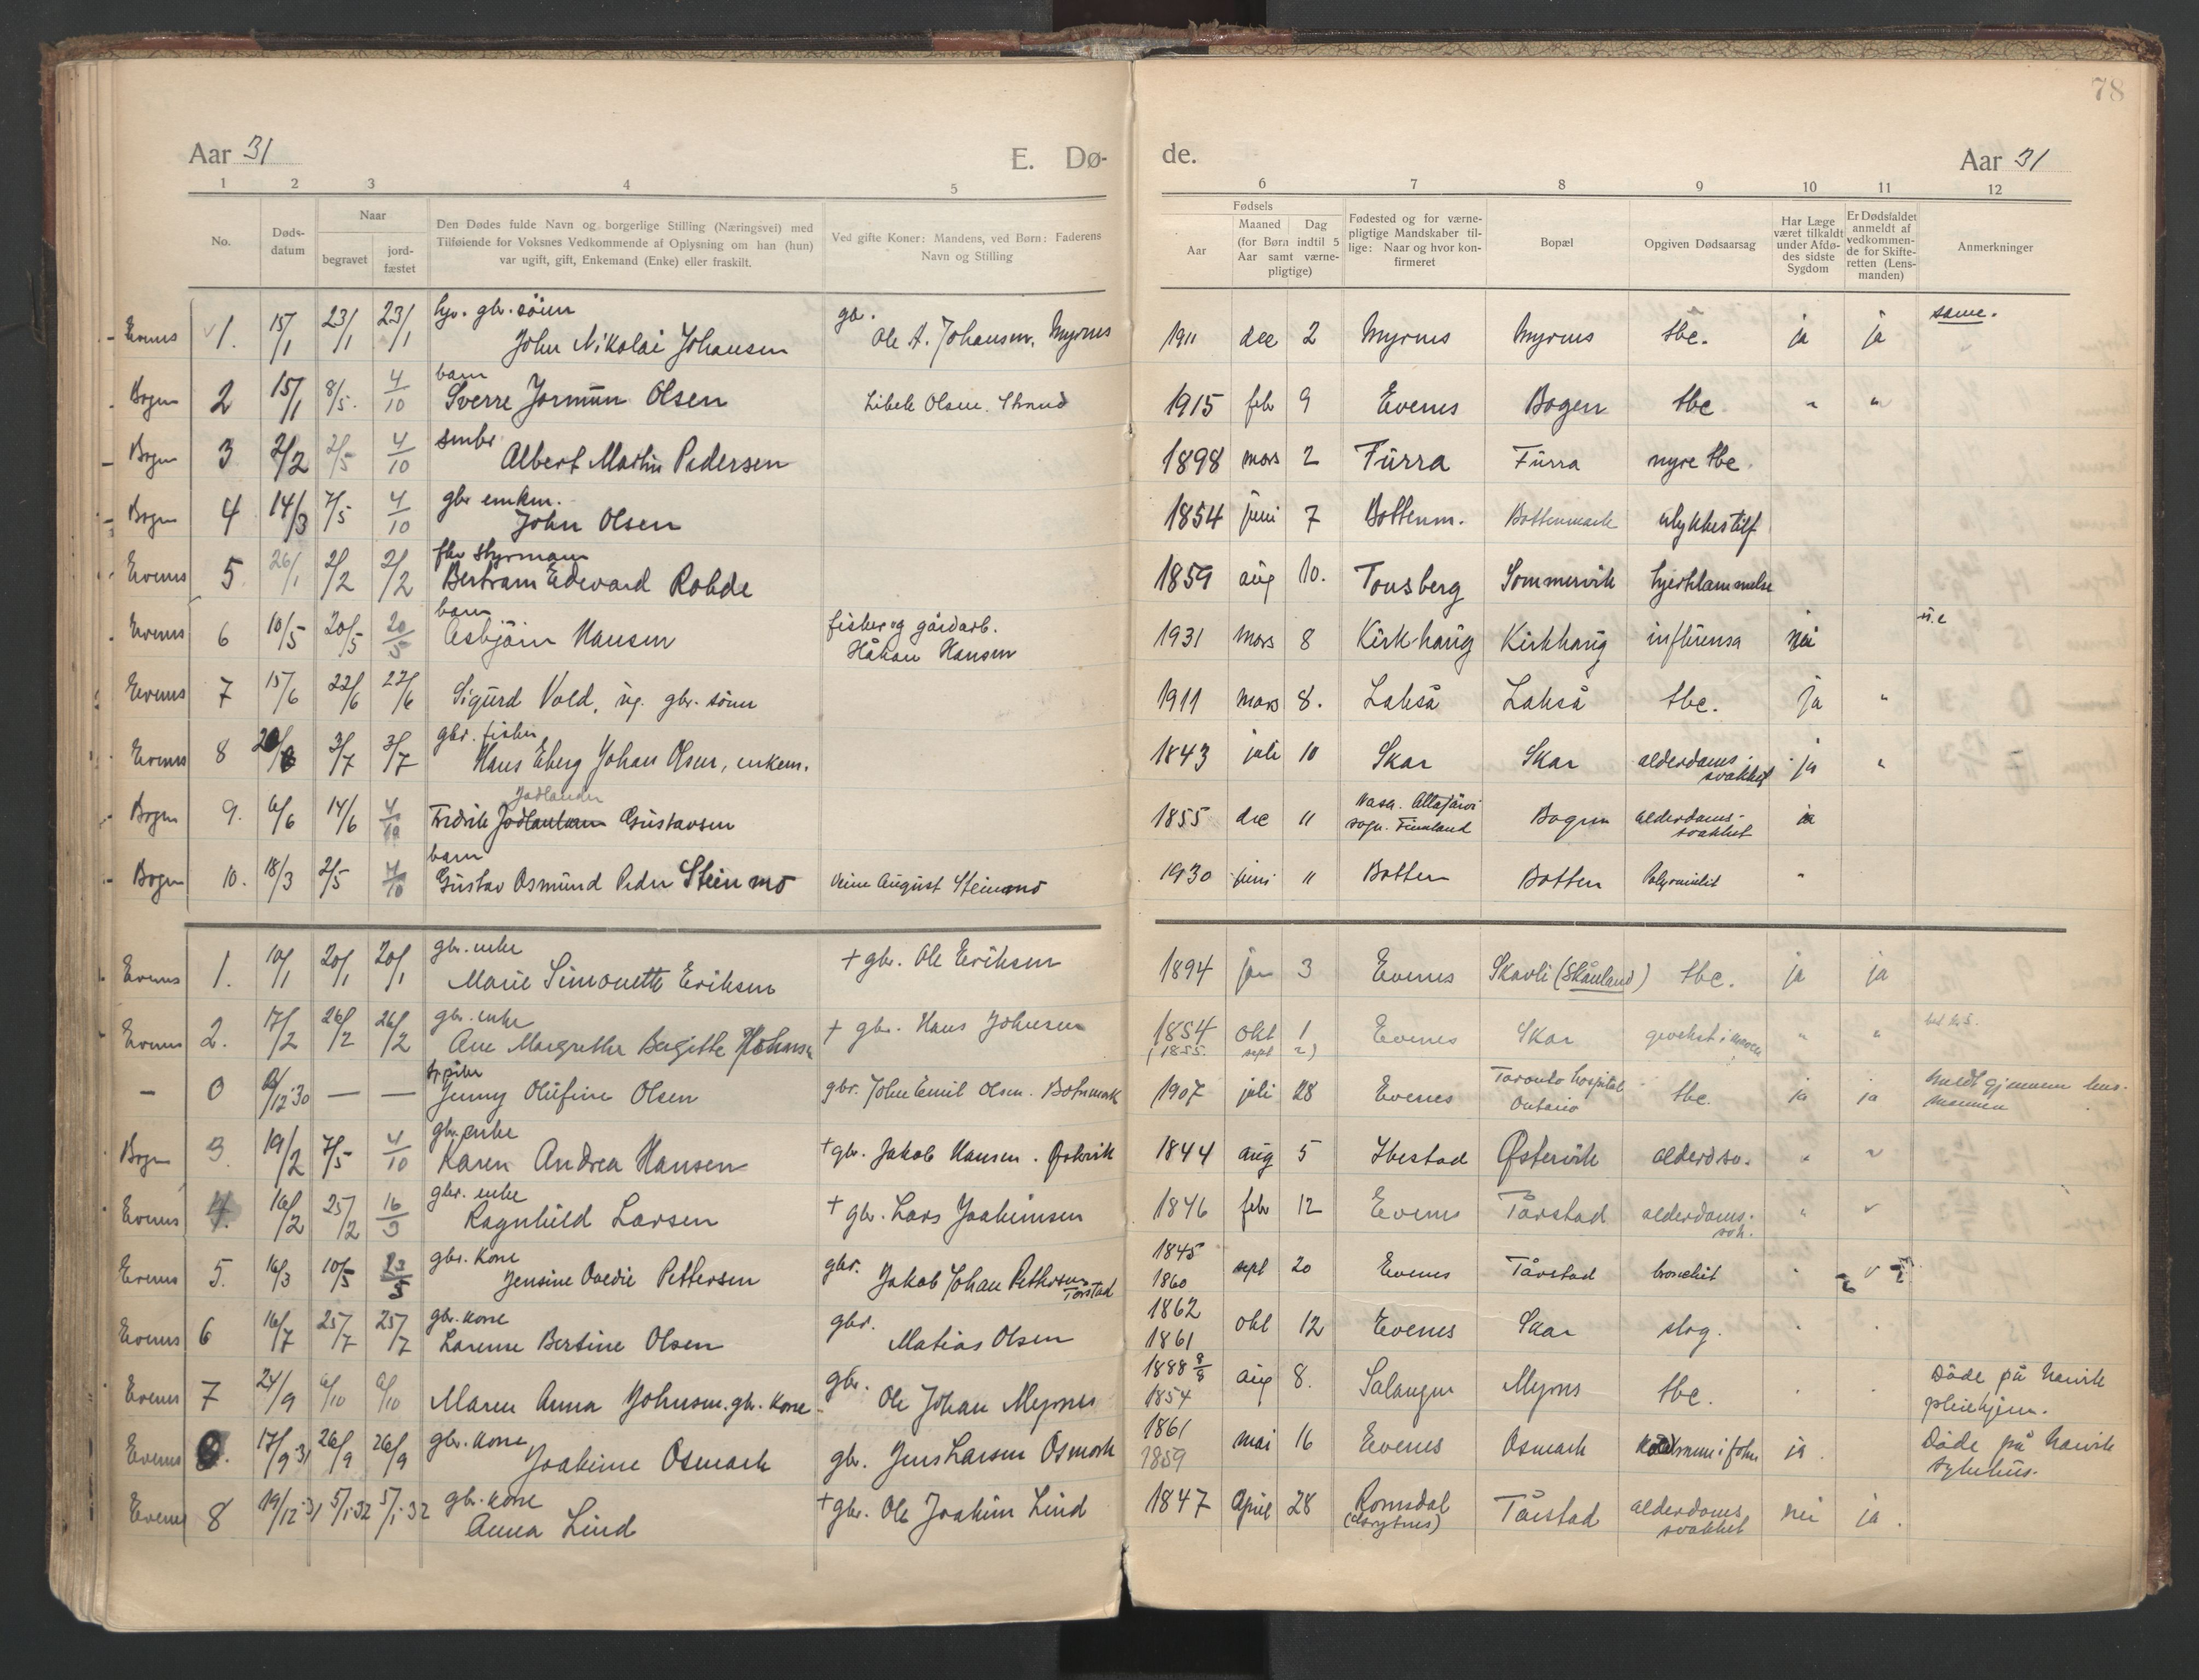 78
Aar 31 E. Dø- de. Aar 31
1 2 3 4 5 6 7 8 9 10 11 12
No. Døds-datum Naar begravet jord-fæstet Den Dødes fulde Navn og borgerlige Stilling (Næringsvei) med Tilføiende for Voksnes Vedkommende af Oplysning om han (hun) var ugift, gift, Enkemand (Enke) eller fraskilt. Ved gifte Koner: Mandens, ved Børn: Faderens Navn og Stilling Fødsels Aar Maaned Dag (for Børn indtil 5 Aar samt værne-pligtige) Fødested og for værne-pligtige Mandskaber til-lige: Naar og hvor kon-firmeret Bopæl Opgiven Dødsaarsag Har Læge været tilkaldt under Afdø-des sidste Sygdom Er Dødsfaldet anmeldt af vedkommen-de for Skifte-retten (Lens-manden) Anmerkninger
Evenes 1. 15/1 23/1 23/1 gbr. sönn John Nikolai Johansen gbr. Ole A. Johansen, Myrnes 1911 dec 2 Myrnes Myrnes tbc. ja ja same.
Bogen 2 15/1 8/5. 4/10 barn Sverre Jormun Olsen Olsen. Strand 1915 febr 9 Evenes Bogen tbc " "
Bogen 3 2/2 2/5 4/10 Albert Martin Pedersen 1898 mars 2 Furra Furra nyre tbc.
Bogen 4 14/3 7/5 4/10 gbr enkm. John Olsen 1854 juni 7 Bottenm. Bottenmark ulykkestilf
Evenes 5 26/1 2/2 2/2 fhv styrmann Bertram Edevard Rohde 1859 aug 10. Tonsberg Sommervik hjerteklammelse
Evenes 6 10/5 20/5 20/5 barn Asbjörn Hansen fisker og gårdarb. Håkon Hansen 1931 mars 8 Kirkhaug Kirkhaug influensa nei u.e
Evenes 7 15/6 22/6 22/6 Sigurd Vold, ug. gbr. sönn 1911 mars 8. Lakså Lakså tbc. ja "
Evenes 8 3/7 3/7 gbr. fisker Hans Eberg Johan Olsen, enkem. 1843 juli 10 Skar Skar alderdoms-svakhet ja "
Bogen 9. 6/6 14/6 4/10 Jodlander Fredrik Gustavsen 1855 dec 11 Vasa. Altajärvi sogn. Finnland Bogen alderdoms-svakhet ja
Bogen 10. 18/3 2/5 4/10 barn Gustav Osmund Peder Steinmo August Steinmo 1930 juni 11 Botten Botten "
Evenes 1. 10/1 20/1 20/1 gbr. enke Marie Simonette Eriksen + gbr. Ole Eriksen 1894 jan 3 Evenes Skavli (Skånland) tbc. ja ja
Evenes 2. 17/2 26/2 26/2 gbr. enke Ane Margrethe Bergitte Johansen + gbr. Hans Johnsen 1854 okt 1 (1855. sept 2) Evenes Skar gevekst i maven " "
— 0 /12 30 — — Jenny Olufine Olsen gbr. John Emil Olsen. Botnmark 1907 juli 28 Evenes Toronto hospital Ontario tbc. ja ja meldt gjennem lens-mannen
Bogen 3 19/2 7/5 4/10 gbr. enke Karen Andrea Hansen + gbr. Jakob Hansen. Østervik 1844 aug 5 Ibestad Østervik alderdsv. " "
Evenes 4. 16/2 25/2 16/3 gbr. enke Ragnhild Larsen + gbr. Lars Joakimsen 1846 febr 12 Evenes Tårstad alderdoms-svh. "
Evenes 5. 16/3 10/5 23/5 gbr. kone Jensine Ovedie Pettersen gbr. Jakob Johan Pettersen Tårstad 1845 1860 sept 20 Evenes Tårstad bronchit
Evenes 6 16/7 25/7 25/7 gbr. kone Larense Bertine Olsen gbr. Matias Olsen 1862 1861 okt 12 Evenes Skar slag.
Evenes 7 24/9 6/10 6/10 Maren Anna Johnsen. gbr. kone gbr. Ole Johan Myrnes 1888 8/8 1854 aug 8. Salangen Myrnes tbc. Døde på Narvik pleiehjem.
Evenes 17/9 31 26/9 26/9 gbr. kone Joakime Osmark gbr. Jens Larsen Osmark 1861 1859 mai 16 Evenes Osmark ja. Døde på Narvik sykehus.
Evenes 8 19/12 31 5/1-32 5/1-32 gbr. kone Anna Lind + gbr. Ole Joakim Lind 1847 April 28 Romsdal Tårstad alderdoms svakhet nei ja.